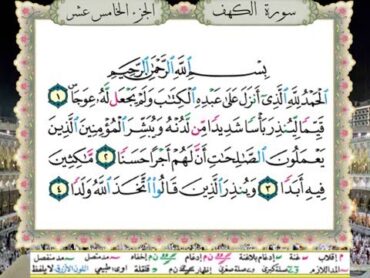 سورة الكهف
الجزء الخامس عشر
بِسْمِ اللَّهِ الرَّحْمَٰنِ الرَّحِيمِ
الْحَمْدُ لِلَّهِ الَّذِي أَنزَلَ عَلَىٰ عَبْدِهِ الْكِتَابَ وَلَمْ يَجْعَل لَّهُ عِوَجًا ۜ ١
قَيِّمًا لِّيُنذِرَ بَأْسًا شَدِيدًا مِّن لَّدُنْهُ وَيُبَشِّرَ الْمُؤْمِنِينَ الَّذِينَ
يَعْمَلُونَ الصَّالِحَاتِ أَنَّ لَهُمْ أَجْرًا حَسَنًا ٢ مَّاكِثِينَ
فِيهِ أَبَدًا ٣ وَيُنذِرَ الَّذِينَ قَالُوا اتَّخَذَ اللَّهُ وَلَدًا ٤